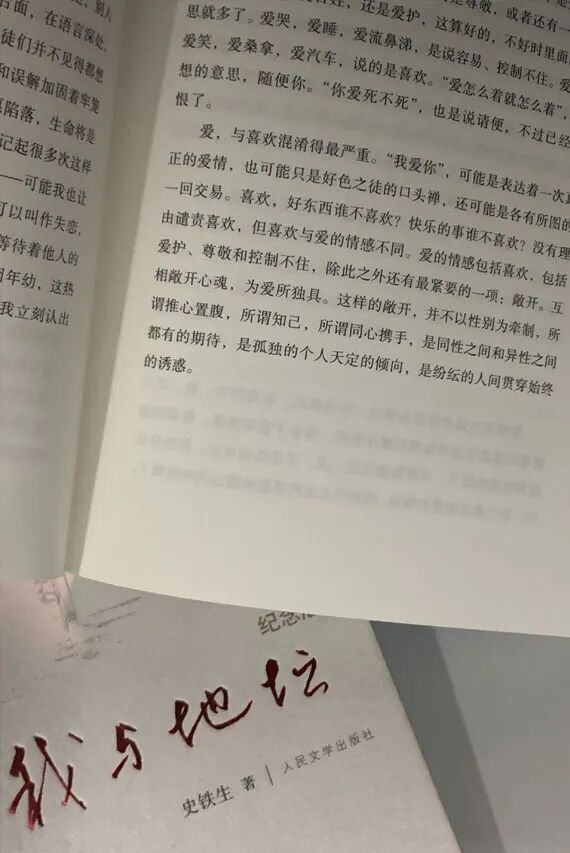 ，别人
台面，在语言深处，
徒们并不见得都想
和误解加固着牢笼
陷落，生命将是
记起很多次这样
——可能我也让
可以叫作失恋，
等待着他人的
年幼，这热
我立刻认出
还是爱护，这算好的，不好时里面
思就多了。爱哭，爱睡，爱流鼻涕，是说容易、控制不住。爱
爱笑，爱桑拿，爱汽车，说的是喜欢。“爱怎么着就怎么着”，
想的意思，随便你。“你爱死不死”，也是说请便，不过已经
恨了。
爱，与喜欢混淆得最严重。“我爱你”，可能是表达着一次真
正的爱情，也可能只是好色之徒的口头禅，还可能是各有所图的
一回交易。喜欢，好东西谁不喜欢？快乐的事谁不喜欢？没有理
由谴责喜欢，但喜欢与爱的情感不同。爱的情感包括喜欢，包括
爱护、尊敬和控制不住，除此之外还有最紧要的一项：敞开。互
相敞开心魂，为爱所独具。这样的敞开，并不以性别为牵制，所
谓推心置腹，所谓知己，所谓同心携手，是同性之间和异性之间
都有的期待，是孤独的个人天定的倾向，是纷纭的人间贯穿始终
的诱惑。
纪念
我与地坛
史铁生 著 | 人民文学出版社